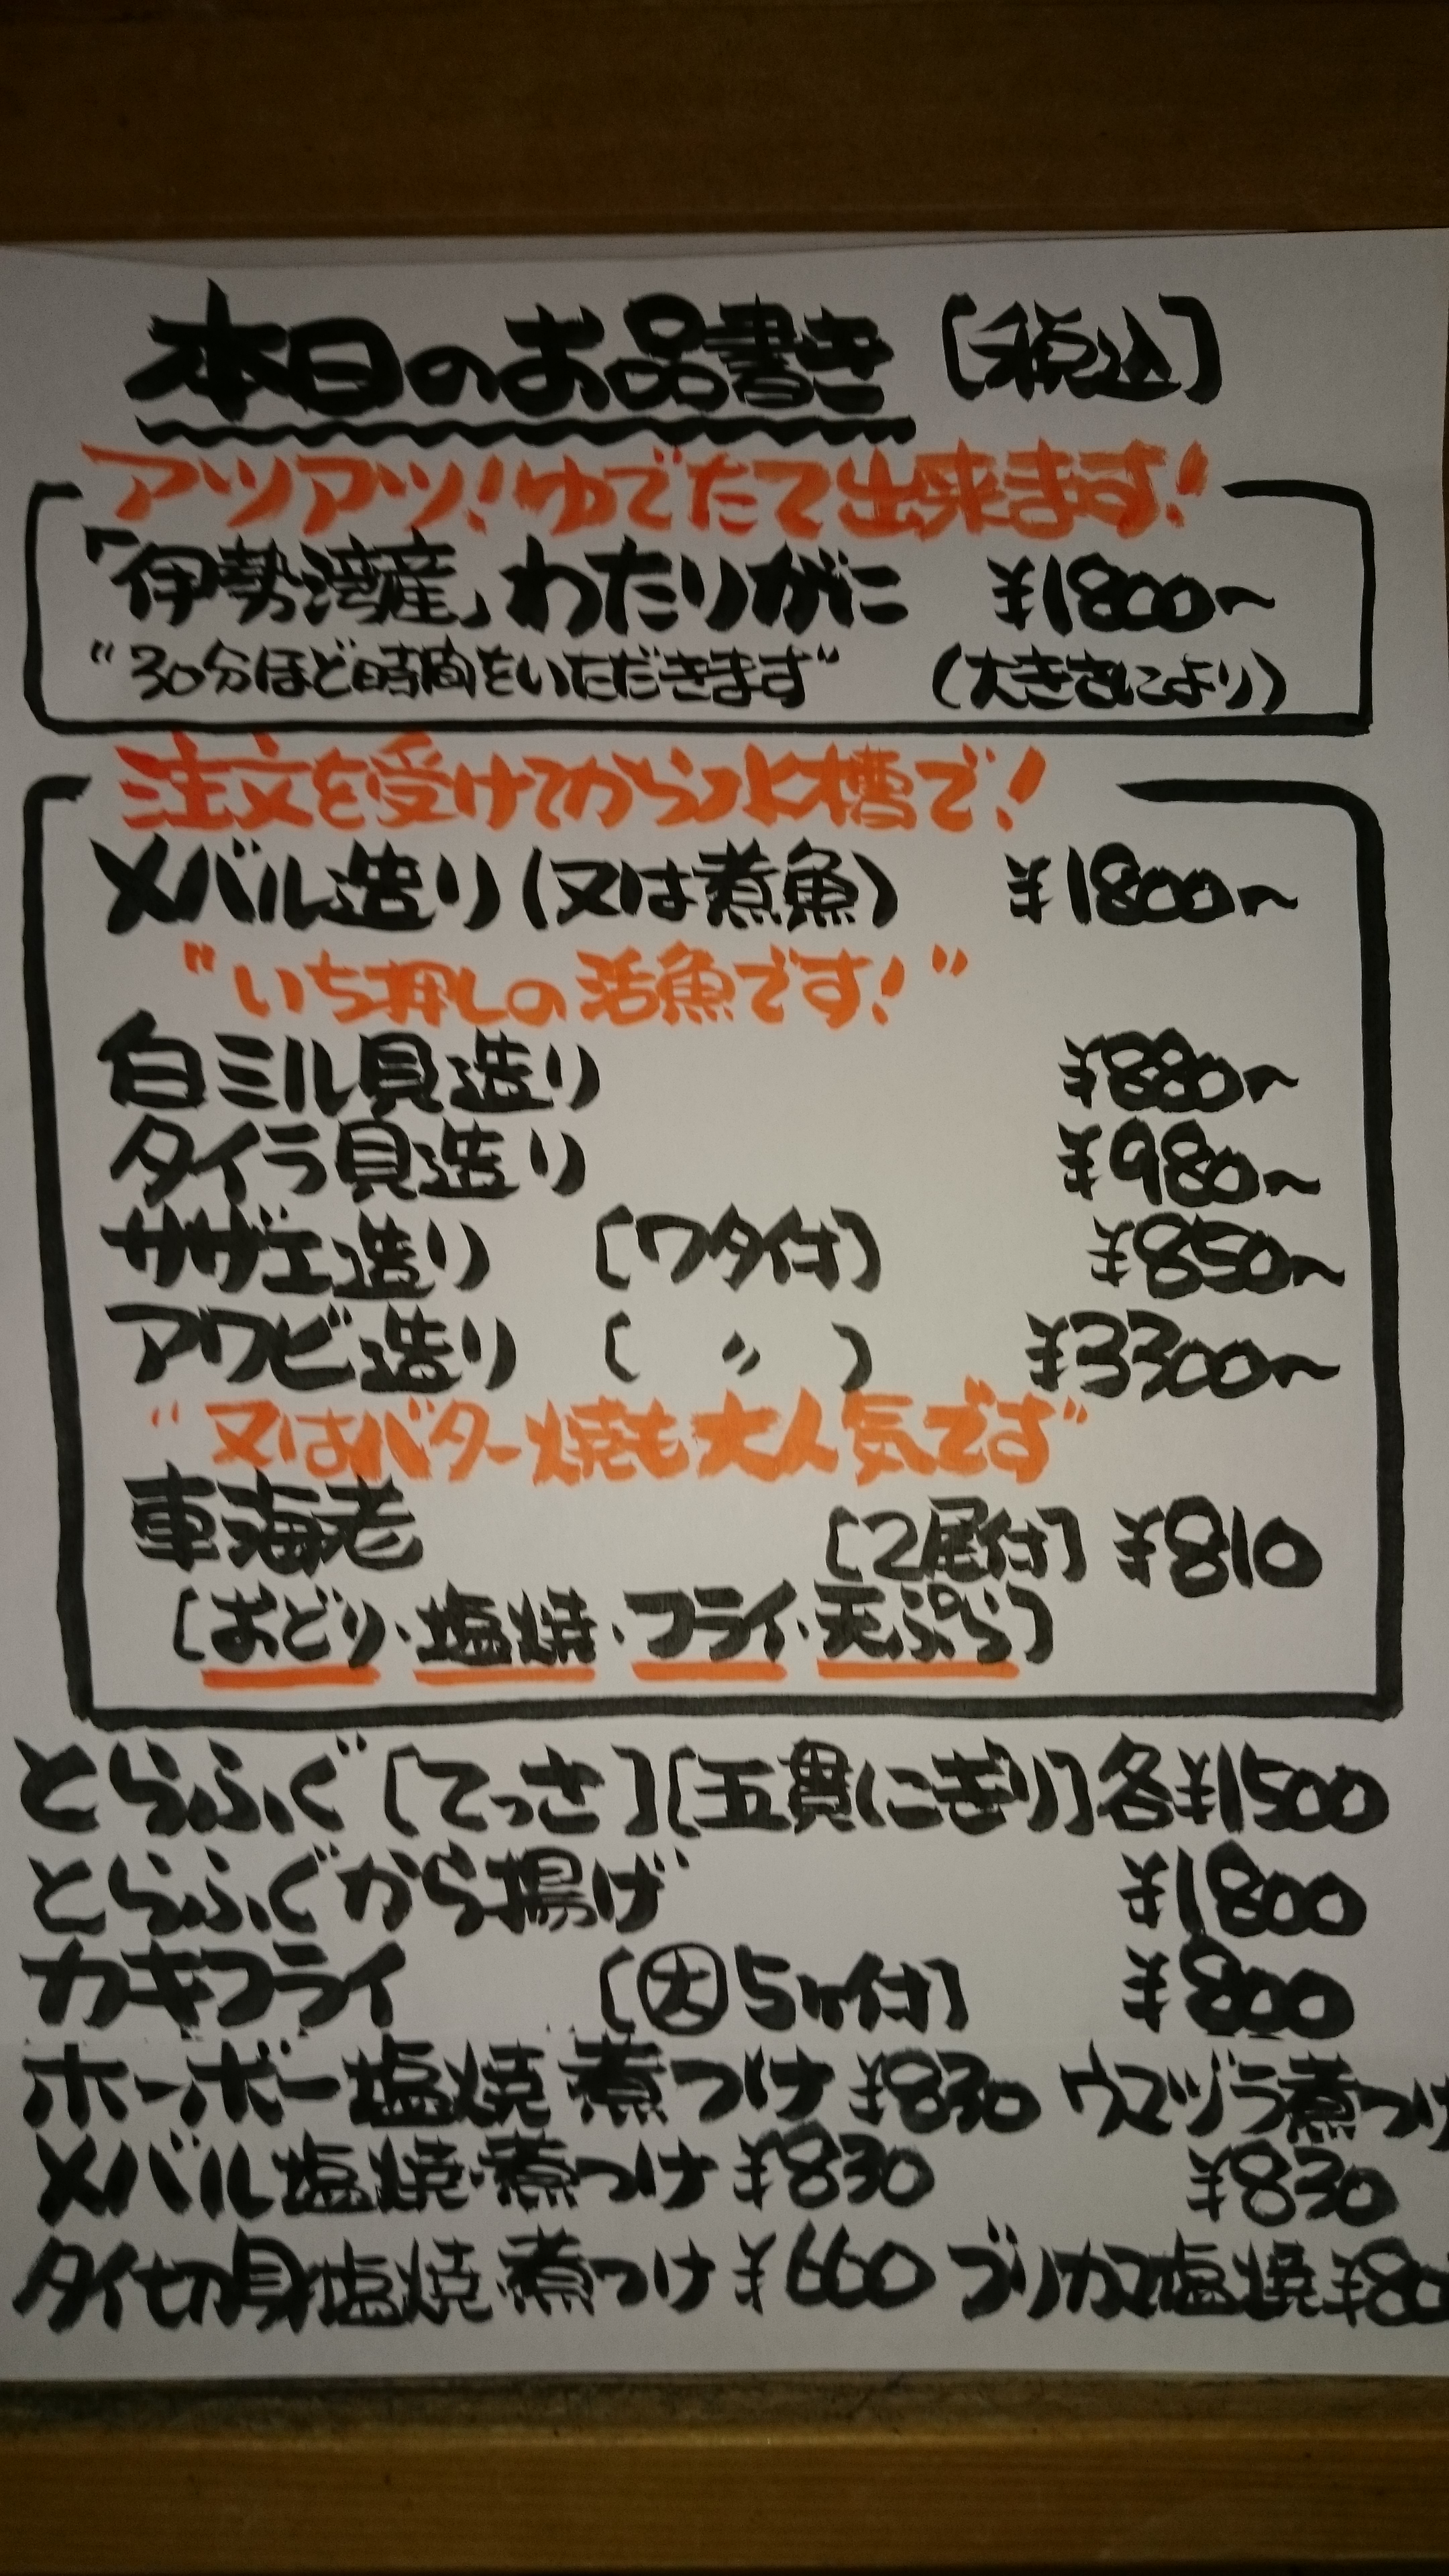 本日のお品書き [税込]
アツアツ!ゆでたて出来ます!
「伊勢湾産」わたりがに ¥1800〜
"30分ほど時間をいただきます" (大きさにより)
注文を受けてから水槽で!
メバル造り(又は煮魚) ¥1800〜
"いち押しの活魚です!"
白ミル貝造り ¥880〜
タイラ貝造り ¥980〜
サザエ造り [ワタ付] ¥850〜
アワビ造り [〃] ¥3300〜
"又はバター焼も大人気です"
車海老 [2尾付] ¥810
[おどり・塩焼・フライ・天ぷら]
とらふぐ [てっさ][五貫にぎり]各¥1500
とらふぐから揚げ ¥1800
カキフライ [大5ヶ付] ¥800
ホーボー塩焼 煮つけ ¥830 ウマヅラ煮つけ
メバル塩焼・煮つけ ¥830 ¥830
タイ切身塩焼・煮つけ ¥660 ブリカマ塩焼